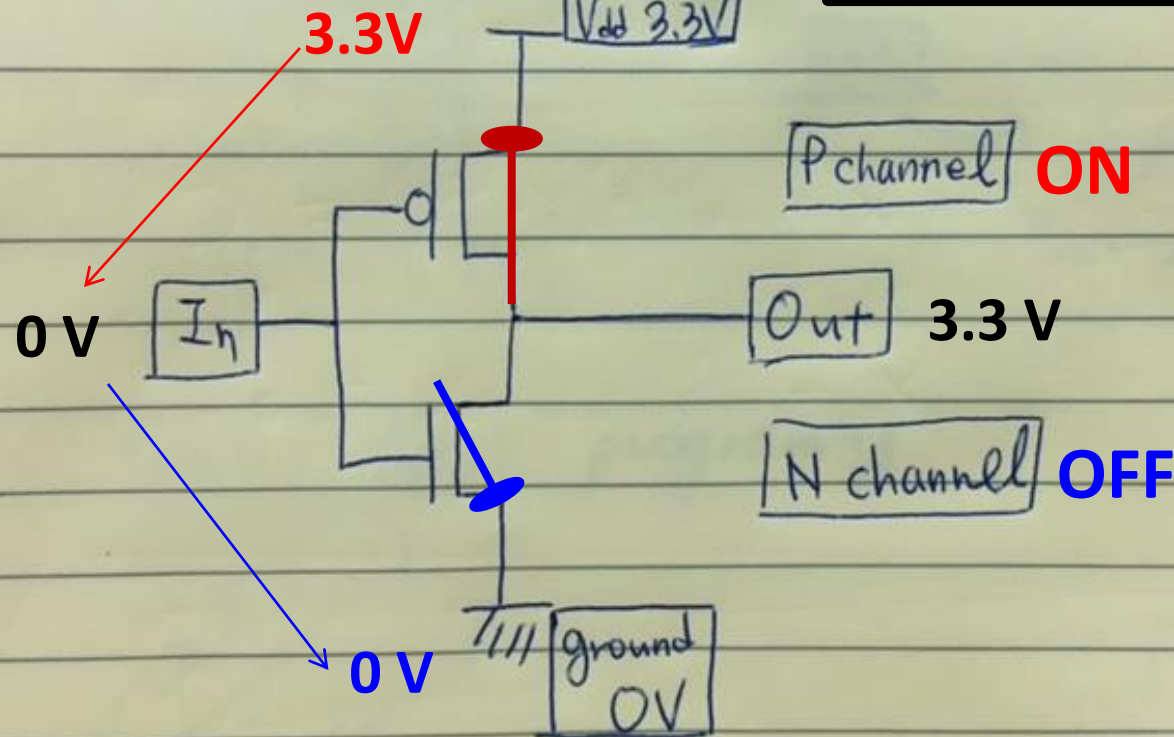 3.3V
Vdd 3.3V
P channel ON
0 V In Out 3.3 V
N channel OFF
0 V
ground
0V